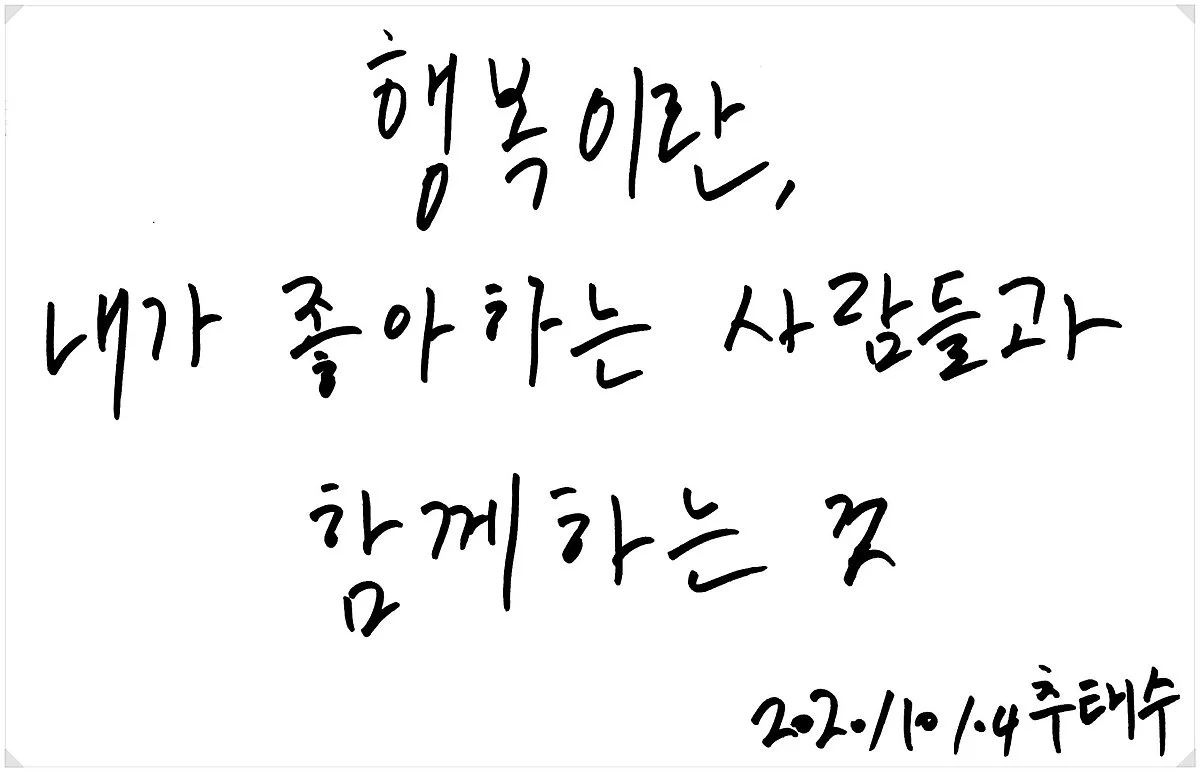 행복이란,
내가 좋아하는 사람들과
함께하는 것
2020/10/.04 추태수